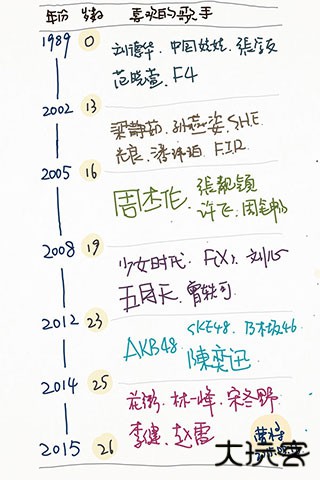 年份 岁数 喜欢的歌手
1989 0 刘德华、中国娃娃、張
范晓萱、F4
2002 13 梁静茹、孙燕姿、S.H.E
光良、潘玮柏、F.I.R
2005 16 周杰伦、張靓颖
许飞、周笔畅
2008 19 少女时代、F(X)、刘
五月天、曾轶可
2012 23 SKE48、乃木坂46
AKB48、陳奕迅
2014 25 花粥、林一峰、宋冬野
2015 26 李健、赵雷
大玩客